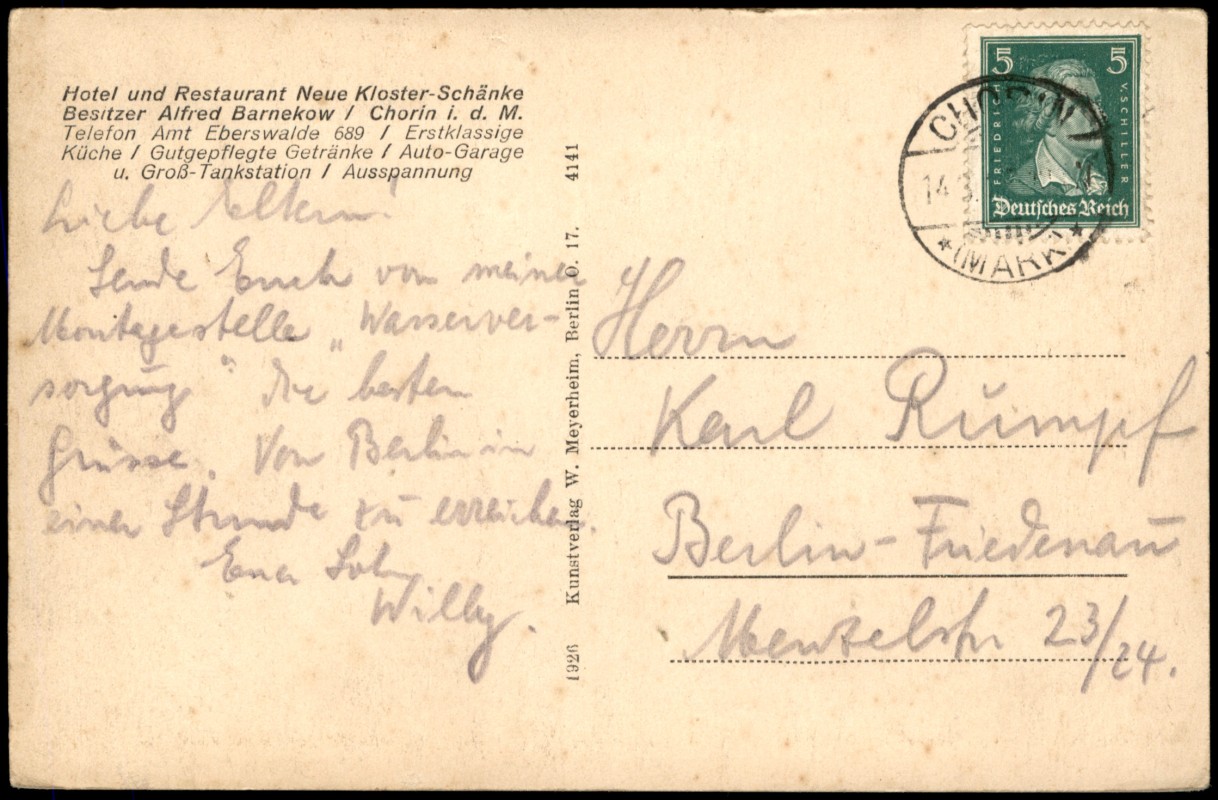 Hotel und Restaurant Neue Kloster-Schänke
Besitzer Alfred Barnekow / Chorin i. d. M.
Telefon Amt Eberswalde 689 / Erstklassige
Küche / Gutgepflegte Getränke / Auto-Garage
u. Groß-Tankstation / Ausspannung
Liebe Eltern!
Sende Euch von meiner
Montagestelle „Wasserver-
sorgung" die besten
Grüsse. Von Berlin in
einer Stunde zu erreichen.
Euer Sohn
Willy.
1926 Kunstverlag W. Meyerheim, Berlin O. 17. 4141
5 5
FRIEDRICH V. SCHILLER
Deutsches Reich
CHORIN
14
(MARK)
Herrn
Karl Rumpf
Berlin-Friedenau
Menzelstr 23/24.